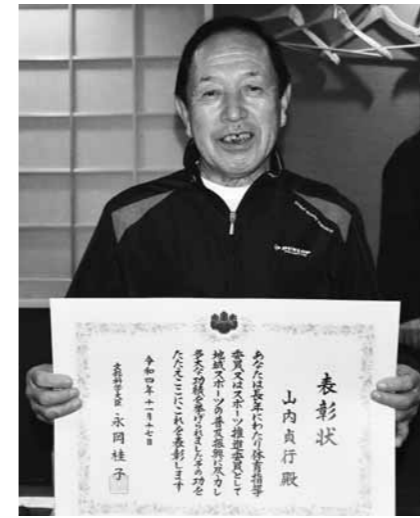 表彰状
山内貞行殿
あなたは長年にわたり体育指導
委員又はスポーツ推進委員として
地域スポーツの普及振興に尽力し
多大な功績を挙げられましたその功を
たたえここにこれを表彰します
令和四年十一月十七日
文部科学大臣 永岡桂子
DUNLOP